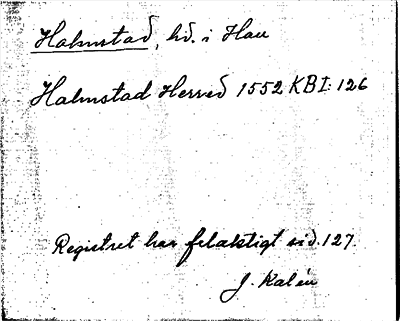 Halmstad, hd. i Hall
Halmstad Herred 1552 KB I: 126
Registret har felaktigt sid. 127.
J. Kalén